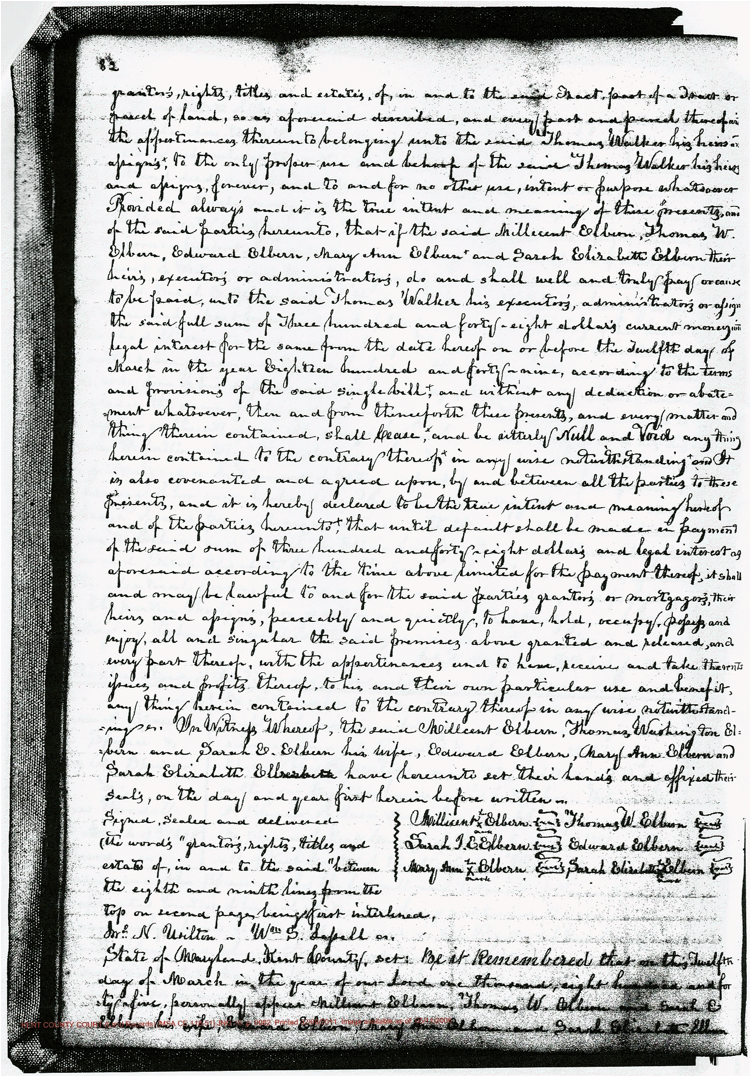 82
grantors, rights, titles and estates, of, in and to the said Tract, part of a Tract or
parcel of land, so as aforesaid described, and every part and parcel thereof
the appertenances thereunto belonging unto the said Thomas Walker his heirs
assigns, to the only proper use and behoof of the said Thomas Walker his heirs
and assigns, forever, and to and for no other use, intent or purpose whatsoever
Provided always and it is the true intent and meaning of these presents, and
of the said parties hereunto, that if the said Millecent Elbern, Thomas W.
Elbern, Edward Elbern, Mary Ann Elburn and Sarah Elizabeth Elbern their
heirs, executors or administrators, do and shall well and truly pay or cause
to be paid, unto the said Thomas Walker his executors, administrators or assigns
the said full sum of Three hundred and forty-eight dollars current money
legal interest for the same from the date hereof on or before the Twelfth day of
March in the year Eighteen hundred and forty-nine, according to the terms
and provisions of the said single bill, and without any deduction or abate=
ment whatsoever, then and from thenceforth these presents, and every matter and
thing therein contained, shall Cease, and be utterly Null and Void any thing
herein contained to the contrary thereof in any wise notwithstanding and It
is also covenanted and agreed upon, by and between all the parties to these
presents, and it is hereby declared to be the true intent and meaning hereof
and of the parties hereunto that until default shall be made in payment
of the said sum of three hundred and forty-eight dollars and legal interest as
aforesaid according to the time above limited for the payment thereof, it shall
and may be lawful to and for the said parties grantors or mortgagors, their
heirs and assigns, peaceably and quietly, to have, hold, occupy, possess and
enjoy, all and singular the said premises above granted and released, and
every part thereof, with the appertenances and to have, receive and take the rents
issues and profits thereof, to his and their own particular use and benefit,
any thing herein contained to the contrary thereof in any wise notwithstand-
ing. In Witness Whereof, the said Millecent Elbern, Thomas Washington El=
bern and Sarah E. Elbern his wife, Edward Elbern, Mary Ann Elbern and
Sarah Elizabeth have hereunto set their hands and affixed their
seals, on the day and year first herein before written
Signed, Sealed and delivered
the words "grantors, rights, titles and
estates of, in and to the said" between
the eighth and ninth lines from the
top on second page, being first interlined,
Millicent Elbern Seal Thomas W. Elburn Seal
Sarah Elbern Seal Edward Elbern Seal
Mary Ann X Elbern Seal Sarah Elizabeth Elburn Seal
N. Wilton Wm S. Lassell
State of Maryland, Kent County, set: Be it Remembered that on this Twelfth
day of March in the year of our Lord one thousand, eight hundred and for
ty five, personally appear Millicent Elburn, Thomas W. Elburn and Sarah E
his wife, Edward Elbern, Mary Ann Elburn and Sarah Elizabeth Elbern
KENT COUNTY